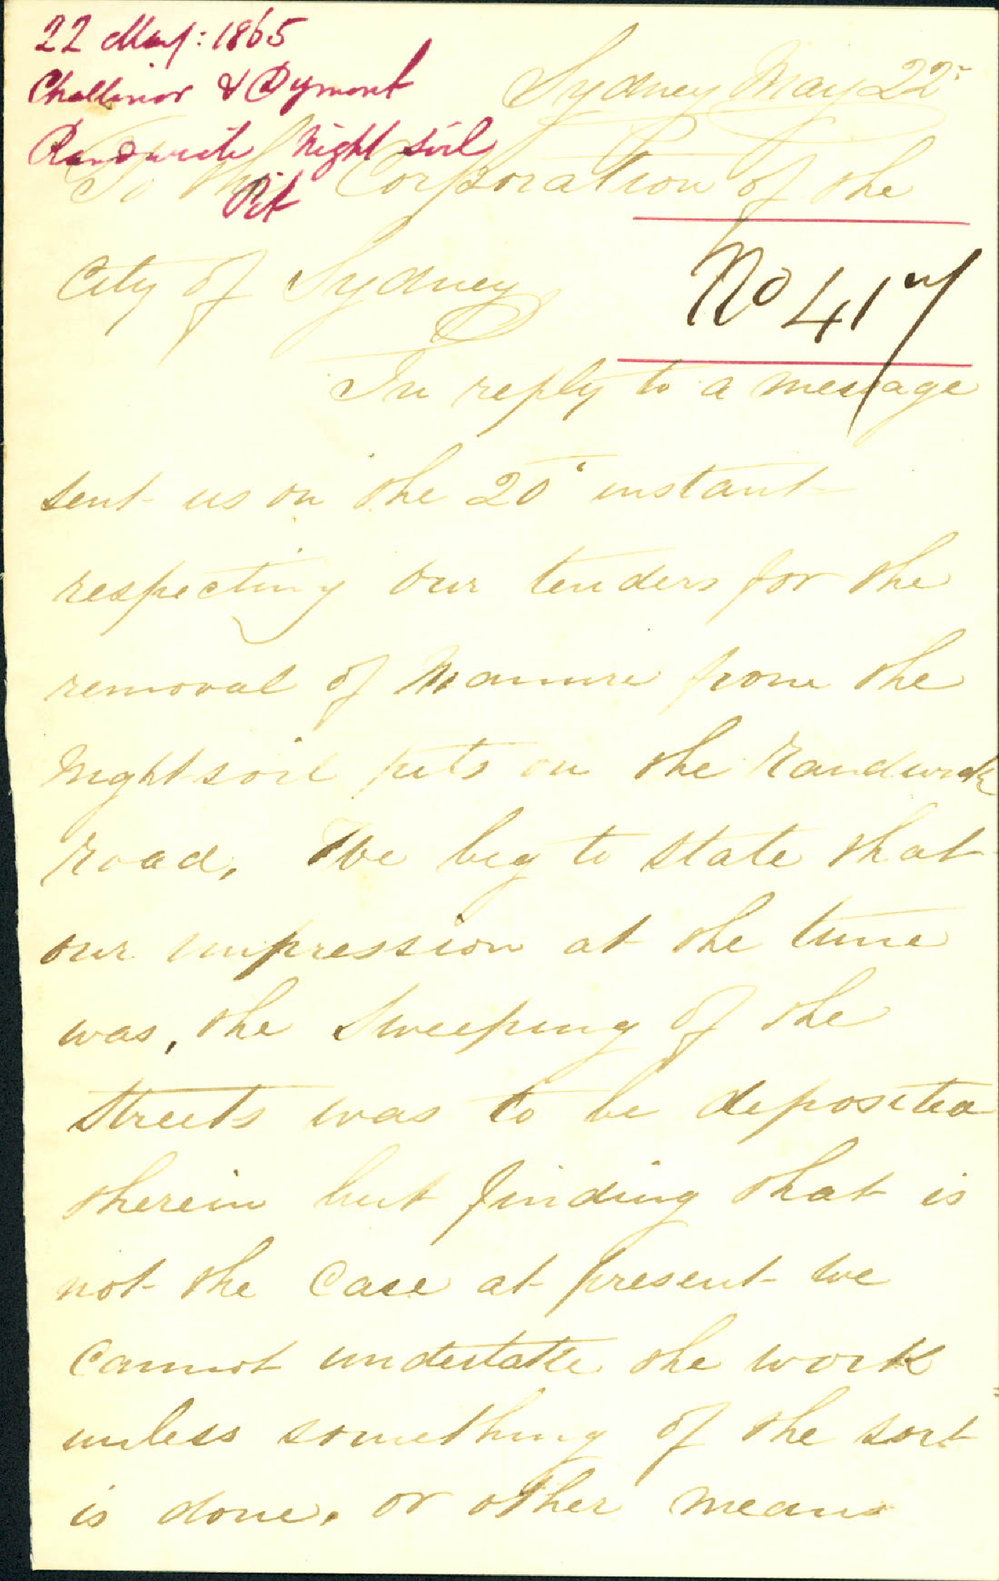 22 May: 1865
Challinor & Dyment
Randwick Night Soil
Pit
Sydney May 22
To the Corporation of the
City of Sydney
No 417
In reply to a message
sent us on the 20 instant
respecting our tenders for the
removal of Manure from the
Nightsoil pits on the Randwick
road, We beg to state that
our impression at the time
was, the Sweeping of the
Streets was to be deposited
therein but finding that is
not the Case at present we
Cannot undertake the work
unless something of the sort
is done, or other means